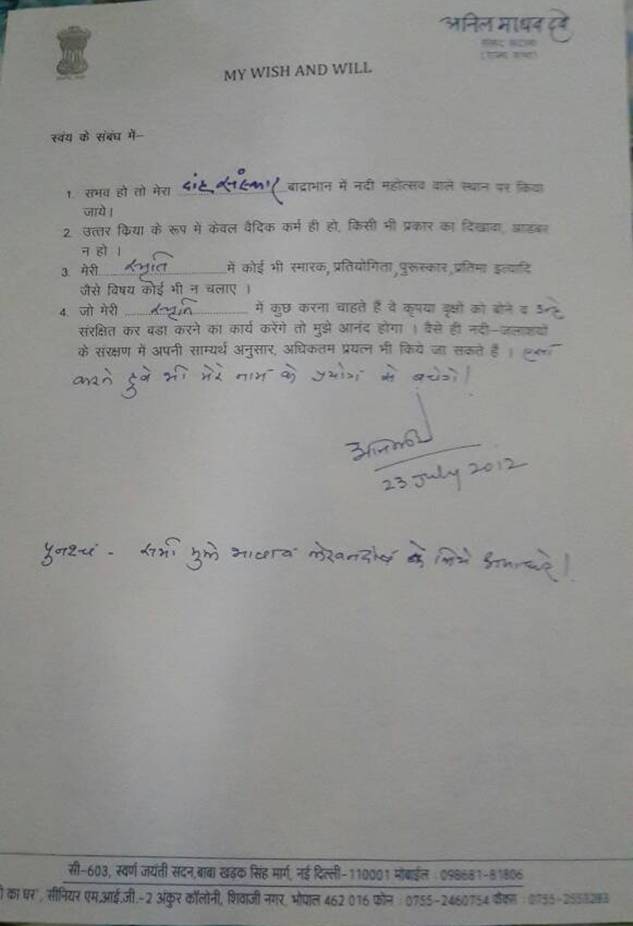 अनिल माधव दवे
संसद सदस्य
(राज्य सभा)
MY WISH AND WILL
स्वंय के संबंध में–
1. संभव हो तो मेरा दाह संस्कार बांद्राभान में नदी महोत्सव वाले स्थान पर किया
जाये।
2. उत्तर क्रिया के रूप में केवल वैदिक कर्म ही हो, किसी भी प्रकार का दिखावा, आडंबर
न हो ।
3. मेरी स्मृति में कोई भी स्मारक, प्रतियोगिता, पुरूस्कार, प्रतिमा इत्यादि
जैसे विषय कोई भी न चलाए ।
4. जो मेरी स्मृति में कुछ करना चाहते हैं वे कृपया वृक्षों को बोने व उन्हे
संरक्षित कर बडा करने का कार्य करेंगे तो मुझे आनंद होगा । वैसे ही नदी–जलाशयों
के संरक्षण में अपनी सामर्थ्य अनुसार, अधिकतम प्रयत्न भी किये जा सकते है । ऐसा
करते हुवे भी मेरे नाम के प्रयोग से बचेंगे!
23 July 2012
पुनश्चं - सभी मुझे के लिये क्षमा करे!
सी–603, स्वर्ण जयंती सदन, बाबा खड़क सिंह मार्ग, नई दिल्ली–110001 मोबाईल : 098681-81806
का घर", सीनियर एम.आई.जी.–2 अंकुर कॉलोनी, शिवाजी नगर, भोपाल 462 016 फोन : 0755-2460754 फैक्स : 0755-2553283